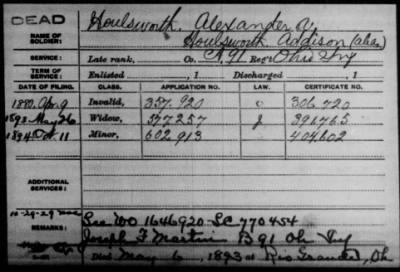 DEAD
Houlsworth, Alexander A.
NAME OF SOLDIER:
Houlsworth, Addison (alias)
SERVICE: Late rank, Co. A, 91 Reg't Ohio Inf
TERM OF SERVICE: Enlisted , 1 Discharged , 1
DATE OF FILING. CLASS. APPLICATION NO. LAW. CERTIFICATE NO.
1880 Apr 9 Invalid, 357.920 306.720
1893 May 26 Widow, 577257 391.765
1894 Oct 11 Minor, 602.913 404.602
ADDITIONAL SERVICES:
10-29-29
See WO 1646920 - SC 770454
REMARKS:
Joseph F Martin B 91 Oh Inf
Died May 6, 1893 at Rio Grande, Oh